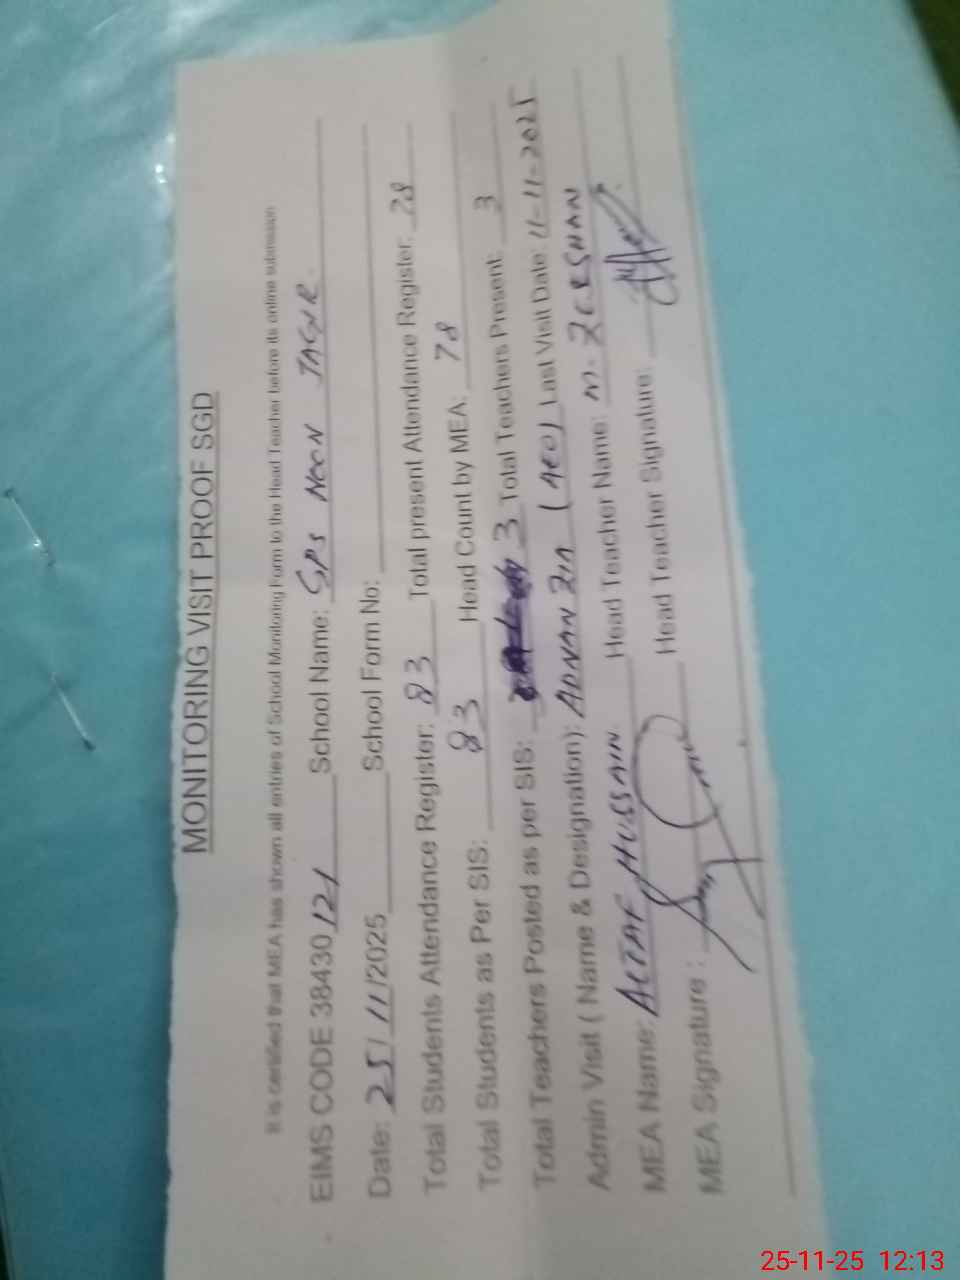 MONITORING VISIT PROOF SGD
It is certified that MEA has shown all entries of School Monitoring Form to the Head Teacher before its online submission
EIMS CODE 38430121 School Name: GPS NOON JAGIR.
Date: 25/11/2025 School Form No:
Total Students Attendance Register: 83 Total present Attendance Register: 78
Total Students as Per SIS: 83 Head Count by MEA: 78
Total Teachers Posted as per SIS: 3 Total Teachers Present: 3
Admin Visit ( Name & Designation): ADNAN ZIA (AEO) Last Visit Date: 11-11-2025
MEA Name: ALTAF HUSSAIN Head Teacher Name: M. ZEESHAN
MEA Signature : Head Teacher Signature:
25-11-25 12:13